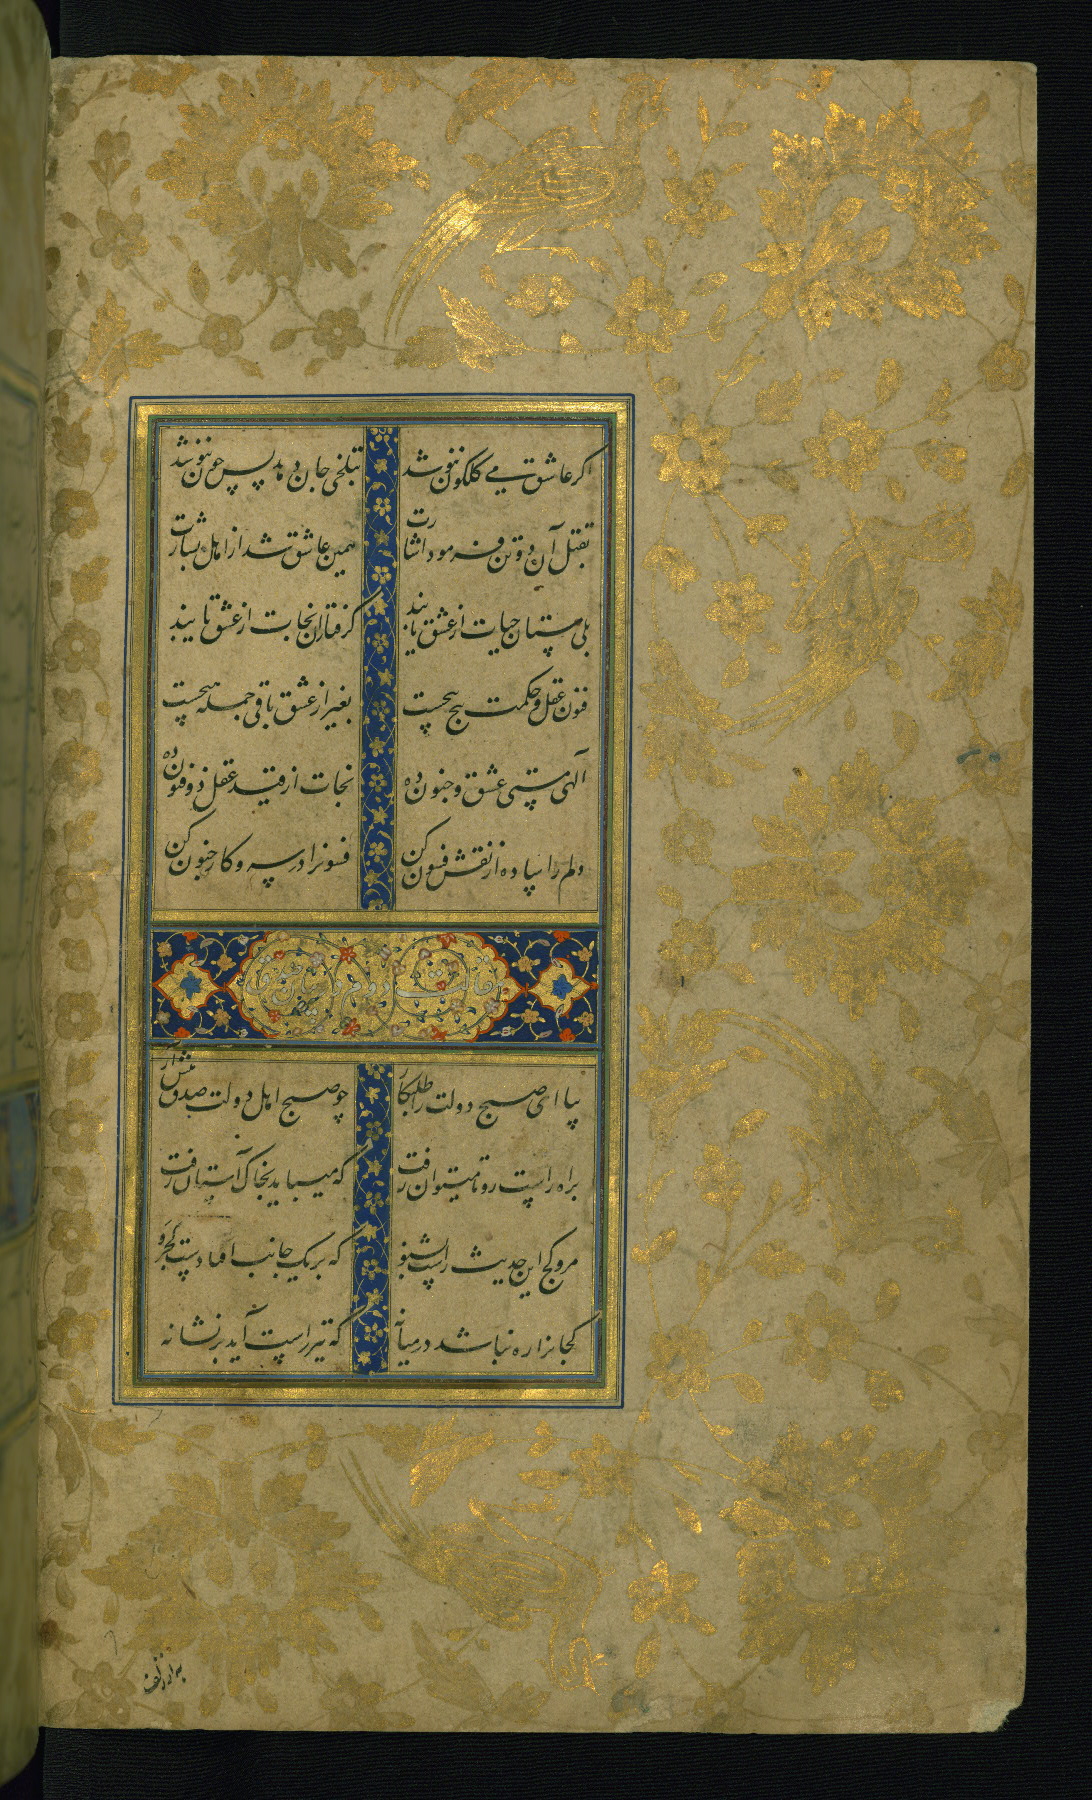 اکر عاشق می کلکون ننوشد بتلخی جان دهد پس چون ننوشد
بقتل آن دو تن فرمود اشارت همین عاشق شد از اهل بشارت
بلی مستان حیات از عشق یابند کرفتاران نجات از عشق یابند
فنون عقل و حکمت هیچ هیچست بغیر از عشق باقی جمله هیچست
آلهی مستی عشق و جنون ده نجات از قید عقل ذو فنون ده
دلم را ساده از نقش فسون کن فسونرا در سر و کار جنون کن
مقالت دوم در
بیا ای صبح دولت را طلبکار چو صبح اهل دولت صدق پیش آر
براه راست رو تا میتوان رفت که میباید بخاک آستان رفت
مرو کج این حدیث راست بشنو که بر یک جانب افتادست کجرو
کجانرا ره نباشد در میانه که تیر راست آید بر نشانه